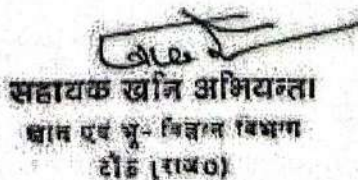 सहायक खनि अभियन्ता
खान एवं भू- विज्ञान विभाग
टोंक (राज०)